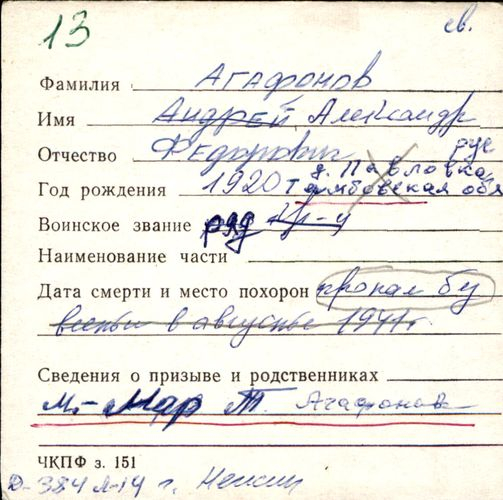 13 св.
Фамилия Агафонов
Имя Андрей Александр
Отчество Федорович рус
д. Павловка
Год рождения 1920 Тамбовская обл
Воинское звание ряд кр-ц
Наименование части
Дата смерти и место похорон пропал без
вести в августе 1941 г.
Сведения о призыве и родственниках
М.- Мар Т. Агафонова
ЧКПФ з. 151
Д-384 л-14 г.